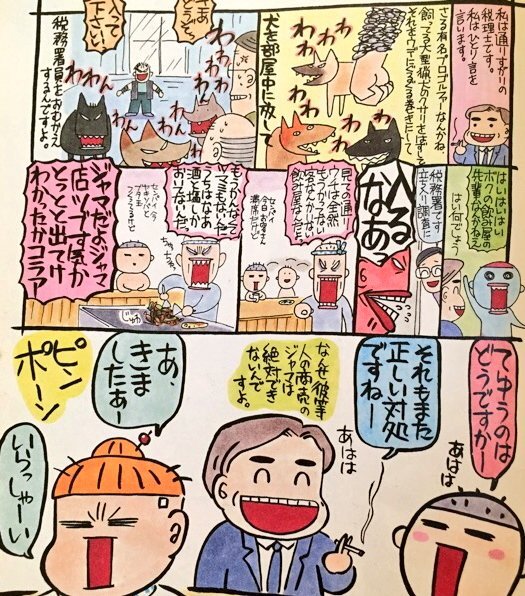 私は通りすがりの
税理士です。
私はひとり言を
言います。
さる有名プロゴルファーなんかね
飼ってる大型猟犬のクサリをはずして
犬を部屋中に放して
わわわん
わわん
わわん
わわん
わわん
さあ
どうぞ
入って
下さい。
税務署員をおむかえ
するんですよ。
はいはいはい
ボクの飲み屋の
先輩なんかねえ
はい何でしょう
税務署です
立入り調査に
入る
なあっ
見ての通り
ウチは全然
もうかってない
飲み屋なんだ
センパイ
今日お客さん
満席だけど
もうかんなくて
ツマミもないんだ
うちはなあ
酒と塩しか
おいてないんだ
センパイ今
ヤキソバと
ブタ玉
つくってるけど
じゅう
ジャマだよジャマ
店ツブす気か
とっとと出てけ
わかったかコラア
てゆうのは
どうですかー
あはは
それもまた
正しい対処
ですねー
あはは
なぜ彼等
人の商売の
ジャマは
絶対でき
ないんで
すよ。
あ、
きま
したぁー
ピン
ポーン
いらっしゃーい